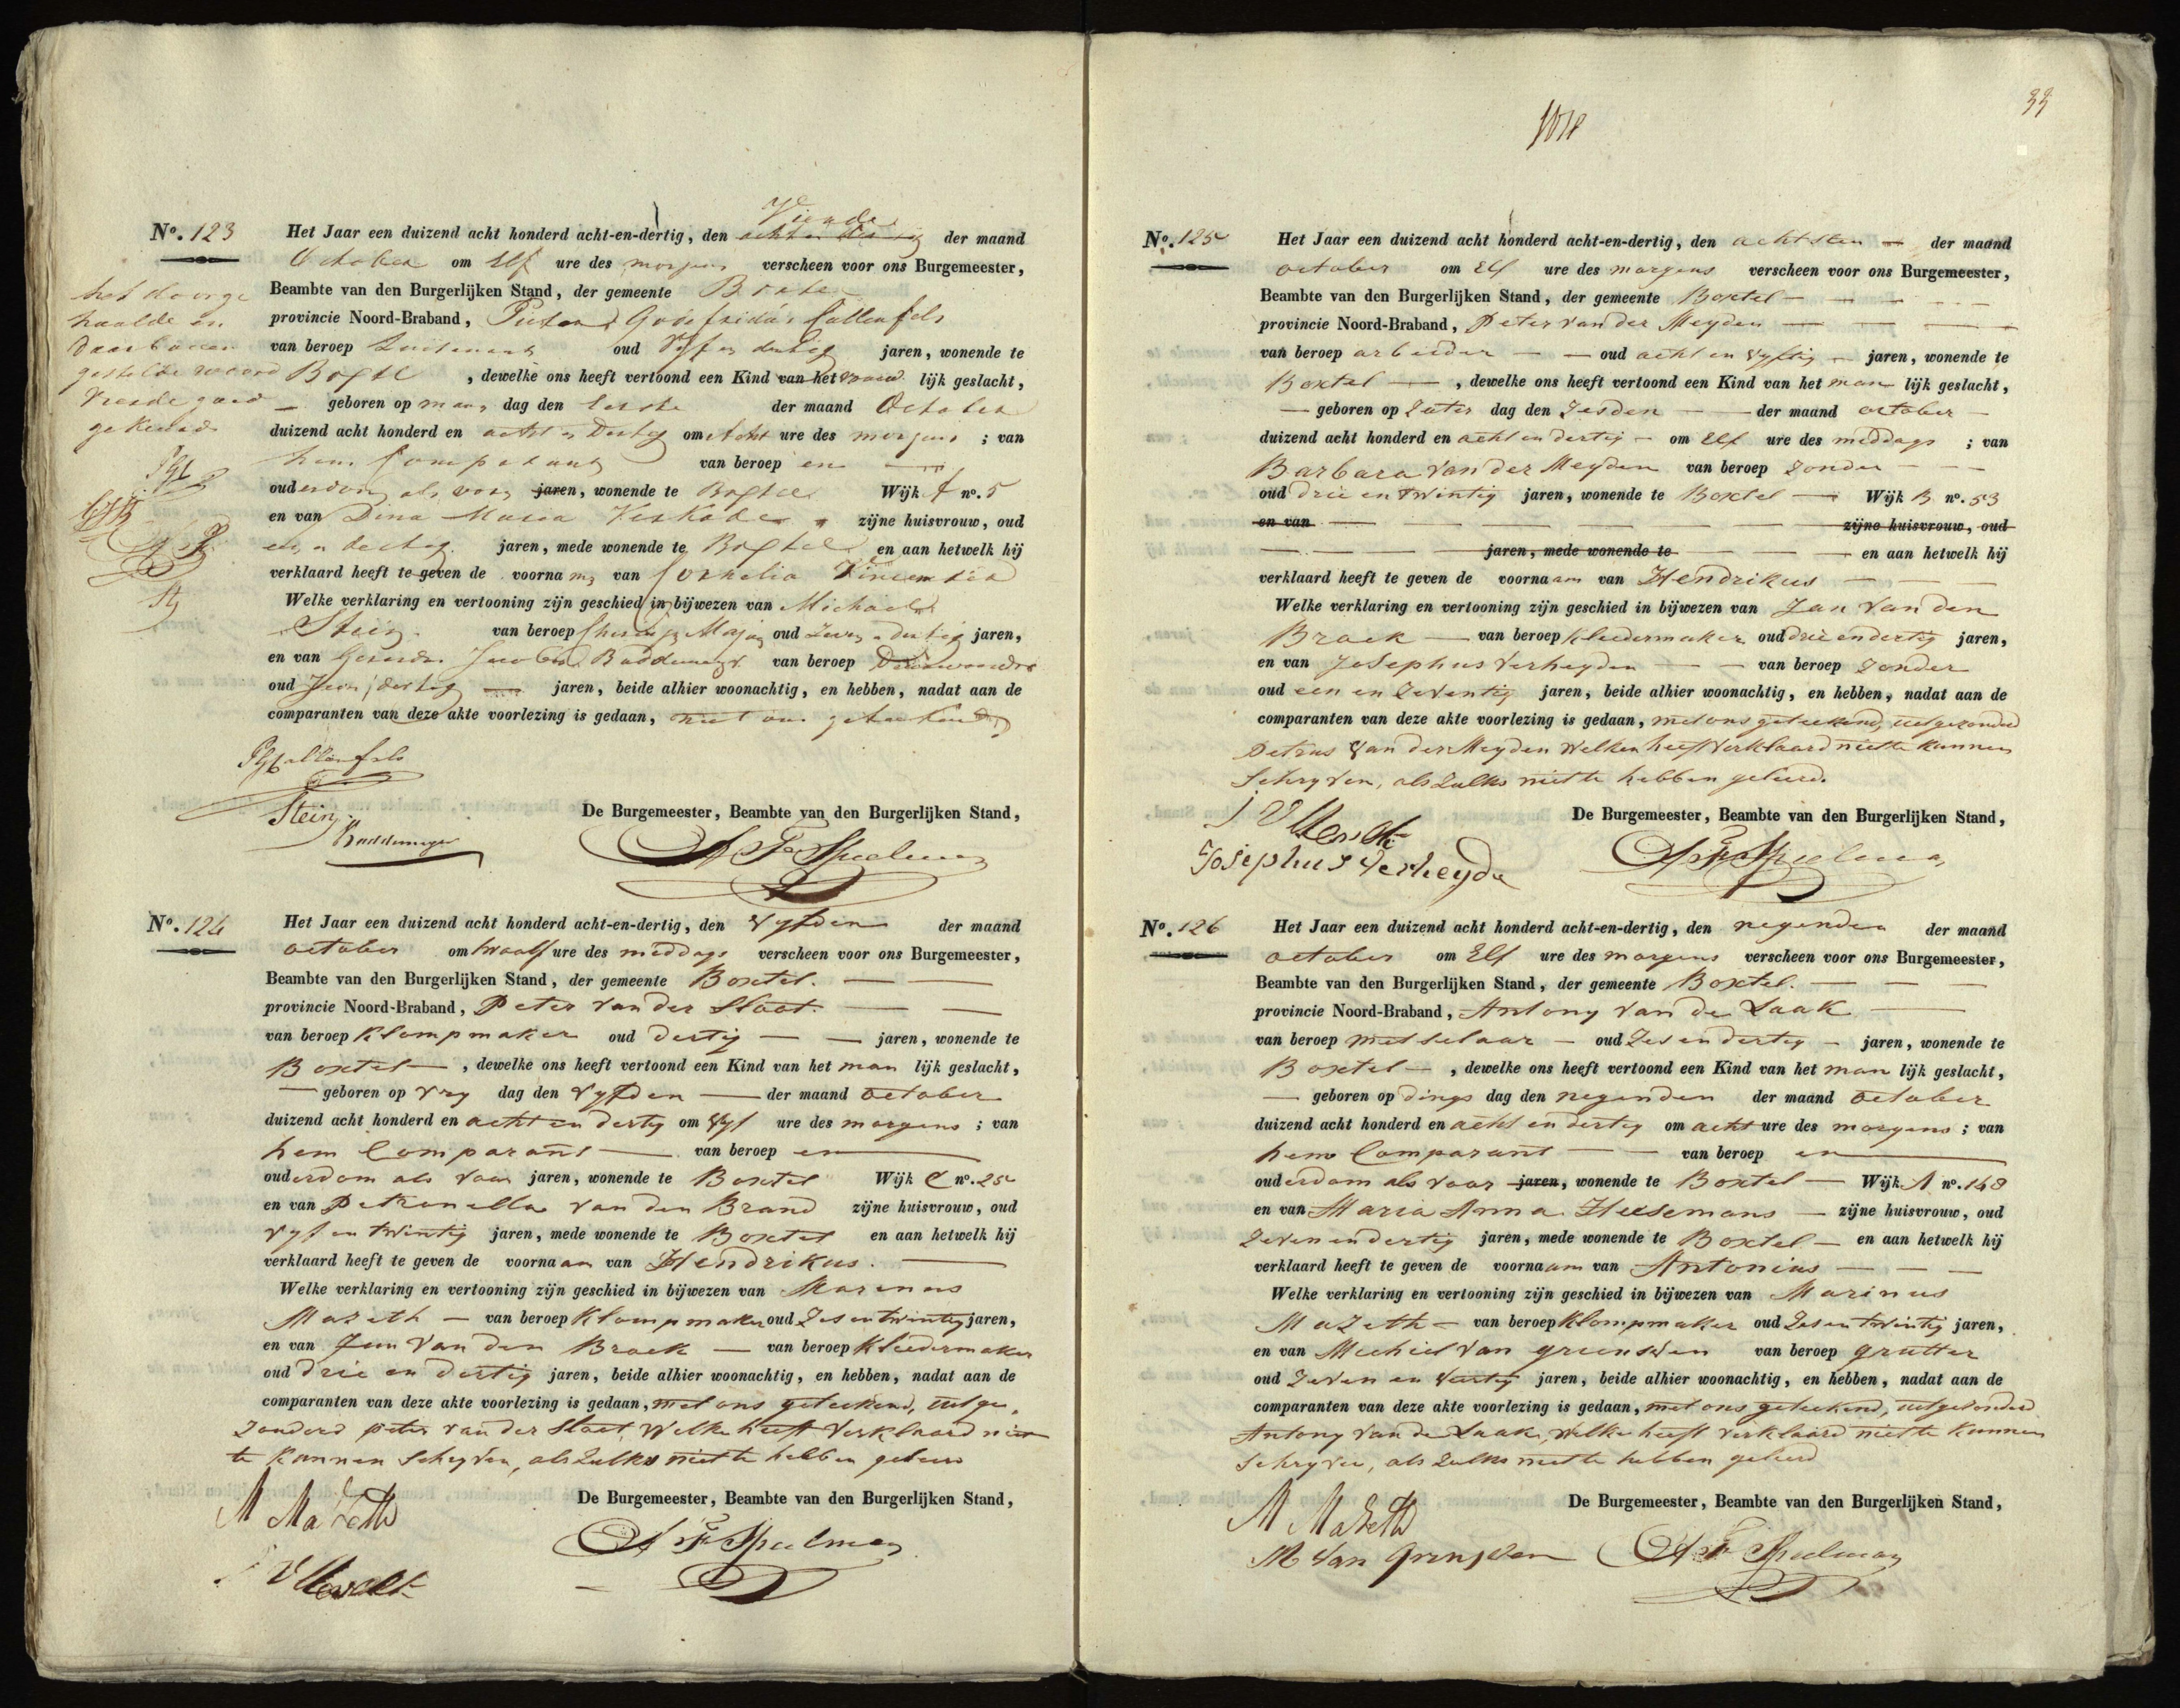 No. 123
Het Jaar een duizend acht honderd acht-en-dertig, den Vierde der maand
October om Elf ure des morgens verscheen voor ons Burgemeester,
Beambte van den Burgerlijken Stand, der gemeente Boxtel
provincie Noord-Braband, Callenfels
van beroep Luitenant oud Vijf en dertig jaren, wonende te
Boxtel, dewelke ons heeft vertoond een Kind van het vrouwlijk geslacht,
geboren op maandag den eerste der maand October
duizend acht honderd en acht en Dertig om Acht ure des morgens ; van
hem Comparant van beroep en
ouderdom als voor jaren, wonende te Boxtel Wijk A no. 5
en van Dina Maria zijne huisvrouw, oud
een en dertig jaren, mede wonende te Boxtel en aan hetwelk hij
verklaard heeft te geven de voornam van Cornelia
Welke verklaring en vertooning zijn geschied in bijwezen van Michael
Stein van beroep oud Zeven en dertig jaren,
en van Jacobus Buddemeyer van beroep
oud jaren, beide alhier woonachtig, en hebben, nadat aan de
comparanten van deze akte voorlezing is gedaan, met ons geteekend
het doorge
haalde en
daarboven
gestelde woord
Vierde goed
gekeurd
Callenfels
Stein
Buddemeyer
De Burgemeester, Beambte van den Burgerlijken Stand,
A F Spielman
No. 124
Het Jaar een duizend acht honderd acht-en-dertig, den Vyfden der maand
october om twaalf ure des middags verscheen voor ons Burgemeester,
Beambte van den Burgerlijken Stand, der gemeente Boxtel.
provincie Noord-Braband, Peter van der Sloot.
van beroep Klompmaker oud dertig jaren, wonende te
Boxtel, dewelke ons heeft vertoond een Kind van het man lijk geslacht,
geboren op vry dag den Vyfden der maand October
duizend acht honderd en acht en dertig om Vyf ure des morgens ; van
hem Comparant van beroep en
ouderdom als voor jaren, wonende te Boxtel Wijk C no. 25
en van Petronella van den Brand zijne huisvrouw, oud
vyf en twintig jaren, mede wonende te Boxtel en aan hetwelk hij
verklaard heeft te geven de voornaam van Hendrikus.
Welke verklaring en vertooning zijn geschied in bijwezen van Marinus
Mazeth van beroep Klompmaker oud Zes en twintig jaren,
en van Jan van den Broek van beroep Kleedermaker
oud drie en dertig jaren, beide alhier woonachtig, en hebben, nadat aan de
comparanten van deze akte voorlezing is gedaan, met ons geteekend, uitge-
zonderd peter van der Sloot, Welke heeft Verklaard niet
te kunnen Schryven, als zulks niet te hebben geleerd
M Mazeth
De Burgemeester, Beambte van den Burgerlijken Stand,
A F Spielman
33
No. 125
Het Jaar een duizend acht honderd acht-en-dertig, den achtsten der maand
october om Elf ure des morgens verscheen voor ons Burgemeester,
Beambte van den Burgerlijken Stand, der gemeente Boxtel
provincie Noord-Braband, Peter van der Meyden
van beroep arbeider oud acht en vyftig jaren, wonende te
Boxtel, dewelke ons heeft vertoond een Kind van het man lijk geslacht,
geboren op Zater dag den Zesden der maand october
duizend acht honderd en acht en dertig om Elf ure des middags ; van
Barbara van der Meyden van beroep Zonder
oud drie en twintig jaren, wonende te Boxtel Wijk B no. 53
en van zijne huisvrouw, oud
jaren, mede wonende te en aan hetwelk hij
verklaard heeft te geven de voornaam van Hendrikus
Welke verklaring en vertooning zijn geschied in bijwezen van Jan van den
Broek van beroep Kleedermaker oud drie en dertig jaren,
en van Josephus Verheyden van beroep Zonder
oud een en Zeventig jaren, beide alhier woonachtig, en hebben, nadat aan de
comparanten van deze akte voorlezing is gedaan, met ons geteekend, uitgezonderd
Petrus van der Meyden Welken heeft Verklaard niet te kunnen
Schryven, als zulks niet te hebben geleerd.
Josephus Verheyde
De Burgemeester, Beambte van den Burgerlijken Stand,
A F Spielman
No. 126
Het Jaar een duizend acht honderd acht-en-dertig, den negenden der maand
october om Elf ure des morgens verscheen voor ons Burgemeester,
Beambte van den Burgerlijken Stand, der gemeente Boxtel.
provincie Noord-Braband, Antony van de Laak
van beroep metselaar oud Zes en dertig jaren, wonende te
Boxtel, dewelke ons heeft vertoond een Kind van het man lijk geslacht,
geboren op dings dag den negenden der maand October
duizend acht honderd en acht en dertig om acht ure des morgens ; van
hem Comparant van beroep en
ouderdom als voor jaren, wonende te Boxtel Wijk A no. 148
en van Maria Anna Heesemans zijne huisvrouw, oud
Zeven en dertig jaren, mede wonende te Boxtel en aan hetwelk hij
verklaard heeft te geven de voornaam van Antonius
Welke verklaring en vertooning zijn geschied in bijwezen van Marinus
Mazeth van beroep Klompmaker oud Zes en twintig jaren,
en van Michiel van grunsven van beroep grutter
oud Zeven en jaren, beide alhier woonachtig, en hebben, nadat aan de
comparanten van deze akte voorlezing is gedaan, met ons geteekend, uitgezonderd
Antony van de Laak, Welke heeft Verklaard niet te kunnen
Schryven, als zulks niet te hebben geleerd
M Mazeth
M van Grunsven
De Burgemeester, Beambte van den Burgerlijken Stand,
A F Spielman